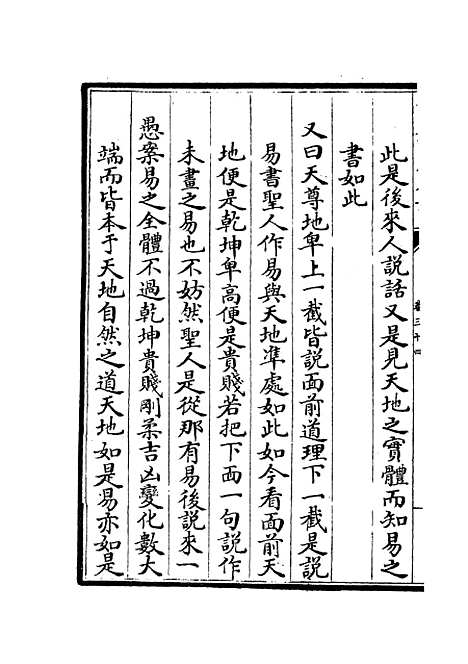 此是後來人説話又是見天地之實體而知易之
書如此
又曰天尊地卑上一截皆説面前道理下一截是説
易書聖人作易與天地凖處如此如今看面前天
地便是乾坤卑髙便是貴賤若把下面一句説作
未畫之易也不妨然聖人是從那有易後説來一
愚案易之全體不過乾坤貴賤剛柔吉凶變化數大
端而皆本于天地自然之道天地如是易亦如是